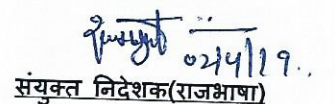 02/4/19.
संयुक्त निदेशक(राजभाषा)